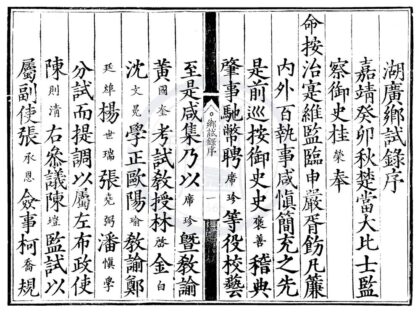 湖廣鄉試錄序
嘉靖癸卯秋楚當大比士監
察御史桂榮奉
命按治寔維監臨申嚴胥飭凡簾
內外百執事咸慎簡充之先
是前巡按御史史褒善稽典
肇事馳幣聘席珍等役校藝
鄉試錄序
一
至是咸集乃以席珍曁教諭
黃國奎考試教授林啓金白
沈文冕學正歐陽瑜教諭鄭
廷楊世瑞張弼潘慎學
分試而提調以屬左布政使
陳則清右參議陳塏監試以
屬副使張承恩僉事柯喬規